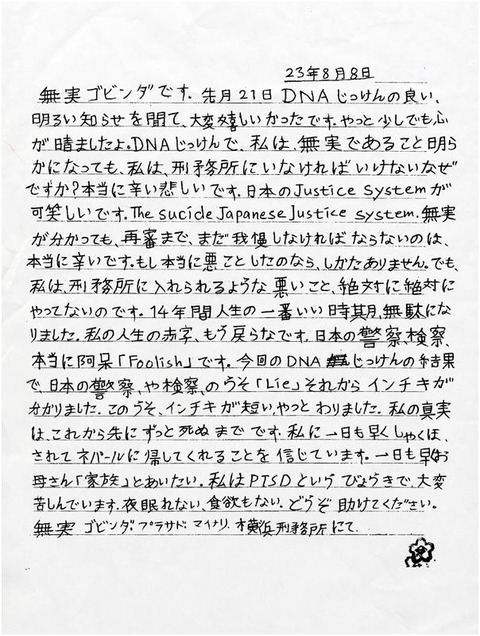 23年8月8日
無実ゴビンダです。先月21日DNAじっけんの良い、
明るい知らせを聞て、大変嬉しいかったです。やっと少しでも心
が晴ましたよ。DNAじっけんで、私は、無実であること明ら
かになっても、私は、刑務所にいなければいけないなぜ
ですか?本当に辛い悲しいです。日本のJustice Systemが
可笑しいです。The sucide Japanese Justice System. 無実
が分かっても、再審まで、まだ我慢しなければならないのは、
本当に辛いです。もし本当に悪ことしたのなら、しかたありません。でも、
私は、刑務所に入れられるような悪いこと、絶対に絶対に
やってないのです。14年間人生の一番いい時期、無駄にな
りました。私の人生の赤字、もう戻らなです。日本の警察、検察、
本当に阿呆「Foolish」です。今回のDNAじっけんの結果
で、日本の警察、や検察、のうそ「Lie」それからインチキが
分がりました。このうそ、インチキが短い、やっとわりました。私の真実
は、これから先にずっと死ぬまでです。私に一日も早くしゃくほ、
されてネパールに帰してくれることを信じています。一日も早くお
母さん「家族」とあいたい。私はPTSDというびょうきで、大変
苦しんでいます。夜眠れない、食欲もない。どうぞ助けてください。
無実 ゴビンダ・プラサド・マイナリ、横浜刑務所にて.